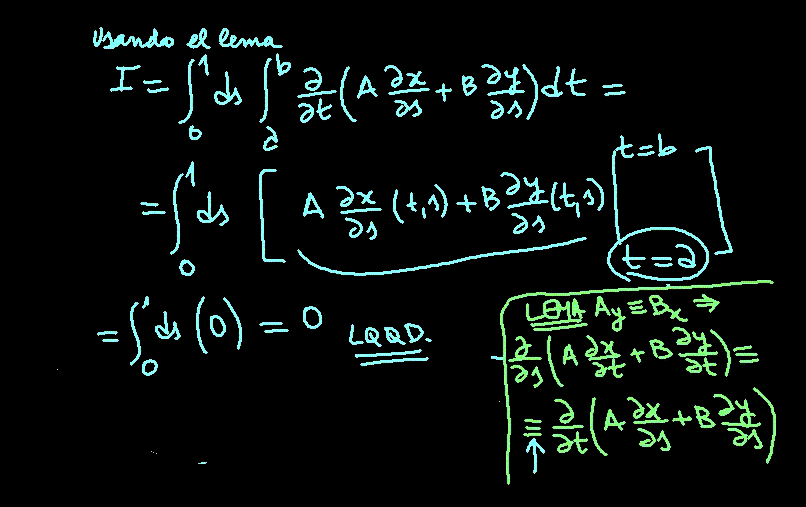 Usando el lema
I = ∫₀¹ ds ∫ₐᵇ ∂/∂t (A ∂x/∂s + B ∂y/∂s) dt =
= ∫₀¹ ds [ A ∂x/∂s (t,s) + B ∂y/∂s (t,s) | t=b
t=a ]
= ∫₀¹ ds (0) = 0 LQQD.
LEMA A_y ≡ B_x ⇒
∂/∂s (A ∂x/∂t + B ∂y/∂t) ≡
≡ ∂/∂t (A ∂x/∂s + B ∂y/∂s)
↑